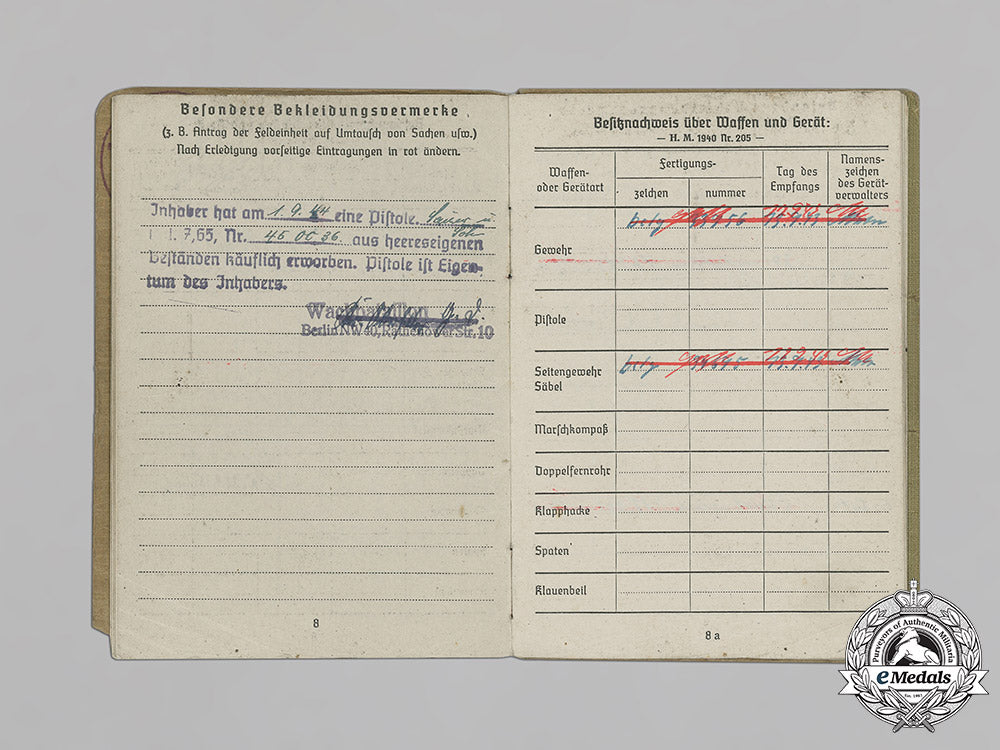 Besondere Bekleidungsvermerke
(z. B. Antrag der Feldeinheit auf Umtausch von Sachen usw.)
Nach Erledigung vorseitige Eintragungen in rot ändern.
Inhaber hat am 1.9.44 eine Pistole Sauer u.
7,65, Nr. aus heereseigenen
Beständen käuflich erworben. Pistole ist Eigen-
tum des Inhabers.
Berlin NW 40, Str. 10
8
Besitznachweis über Waffen und Gerät:
— H. M. 1940 Nr. 205 —
Waffen-
oder Gerätart
Fertigungs-
zeichen
nummer
Tag des
Empfangs
Namens-
zeichen
des Gerät-
verwalters
Gewehr
Pistole
Seitengewehr
Säbel
Marschkompaß
Doppelfernrohr
Klapphacke
Spaten
Klauenbeil
8a
Purveyors of Authentic Militaria
eMedals